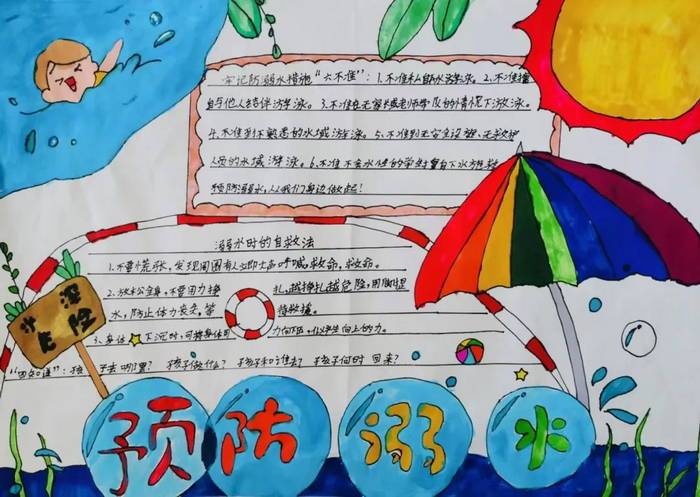 牢记防溺水措施“六不准”：1.不准私自防水游泳。2.不准擅
自与他人结伴游泳。3.不准在无家长或老师带队的情况下游泳。
4.不准到不熟悉的水域游泳。5.不准到无安全设施、无救护
人员的水域游泳。6.不准不会水性的学生擅自下水施救。
预防溺水，从我们身边做起！
溺水时的自救法
1.不要慌张，发现周围有人立即大声呼喊救命，救命。
2.放松全身，不要用力挣扎，越挣扎越危险，用脚踢
水，防止体力丧失，等待救援。
3.身体下沉时，可将身体
力向下压，
“四知道”：孩子去哪里？孩子做什么？孩子和谁去？孩子何时回来？
水深
危险
预防溺水